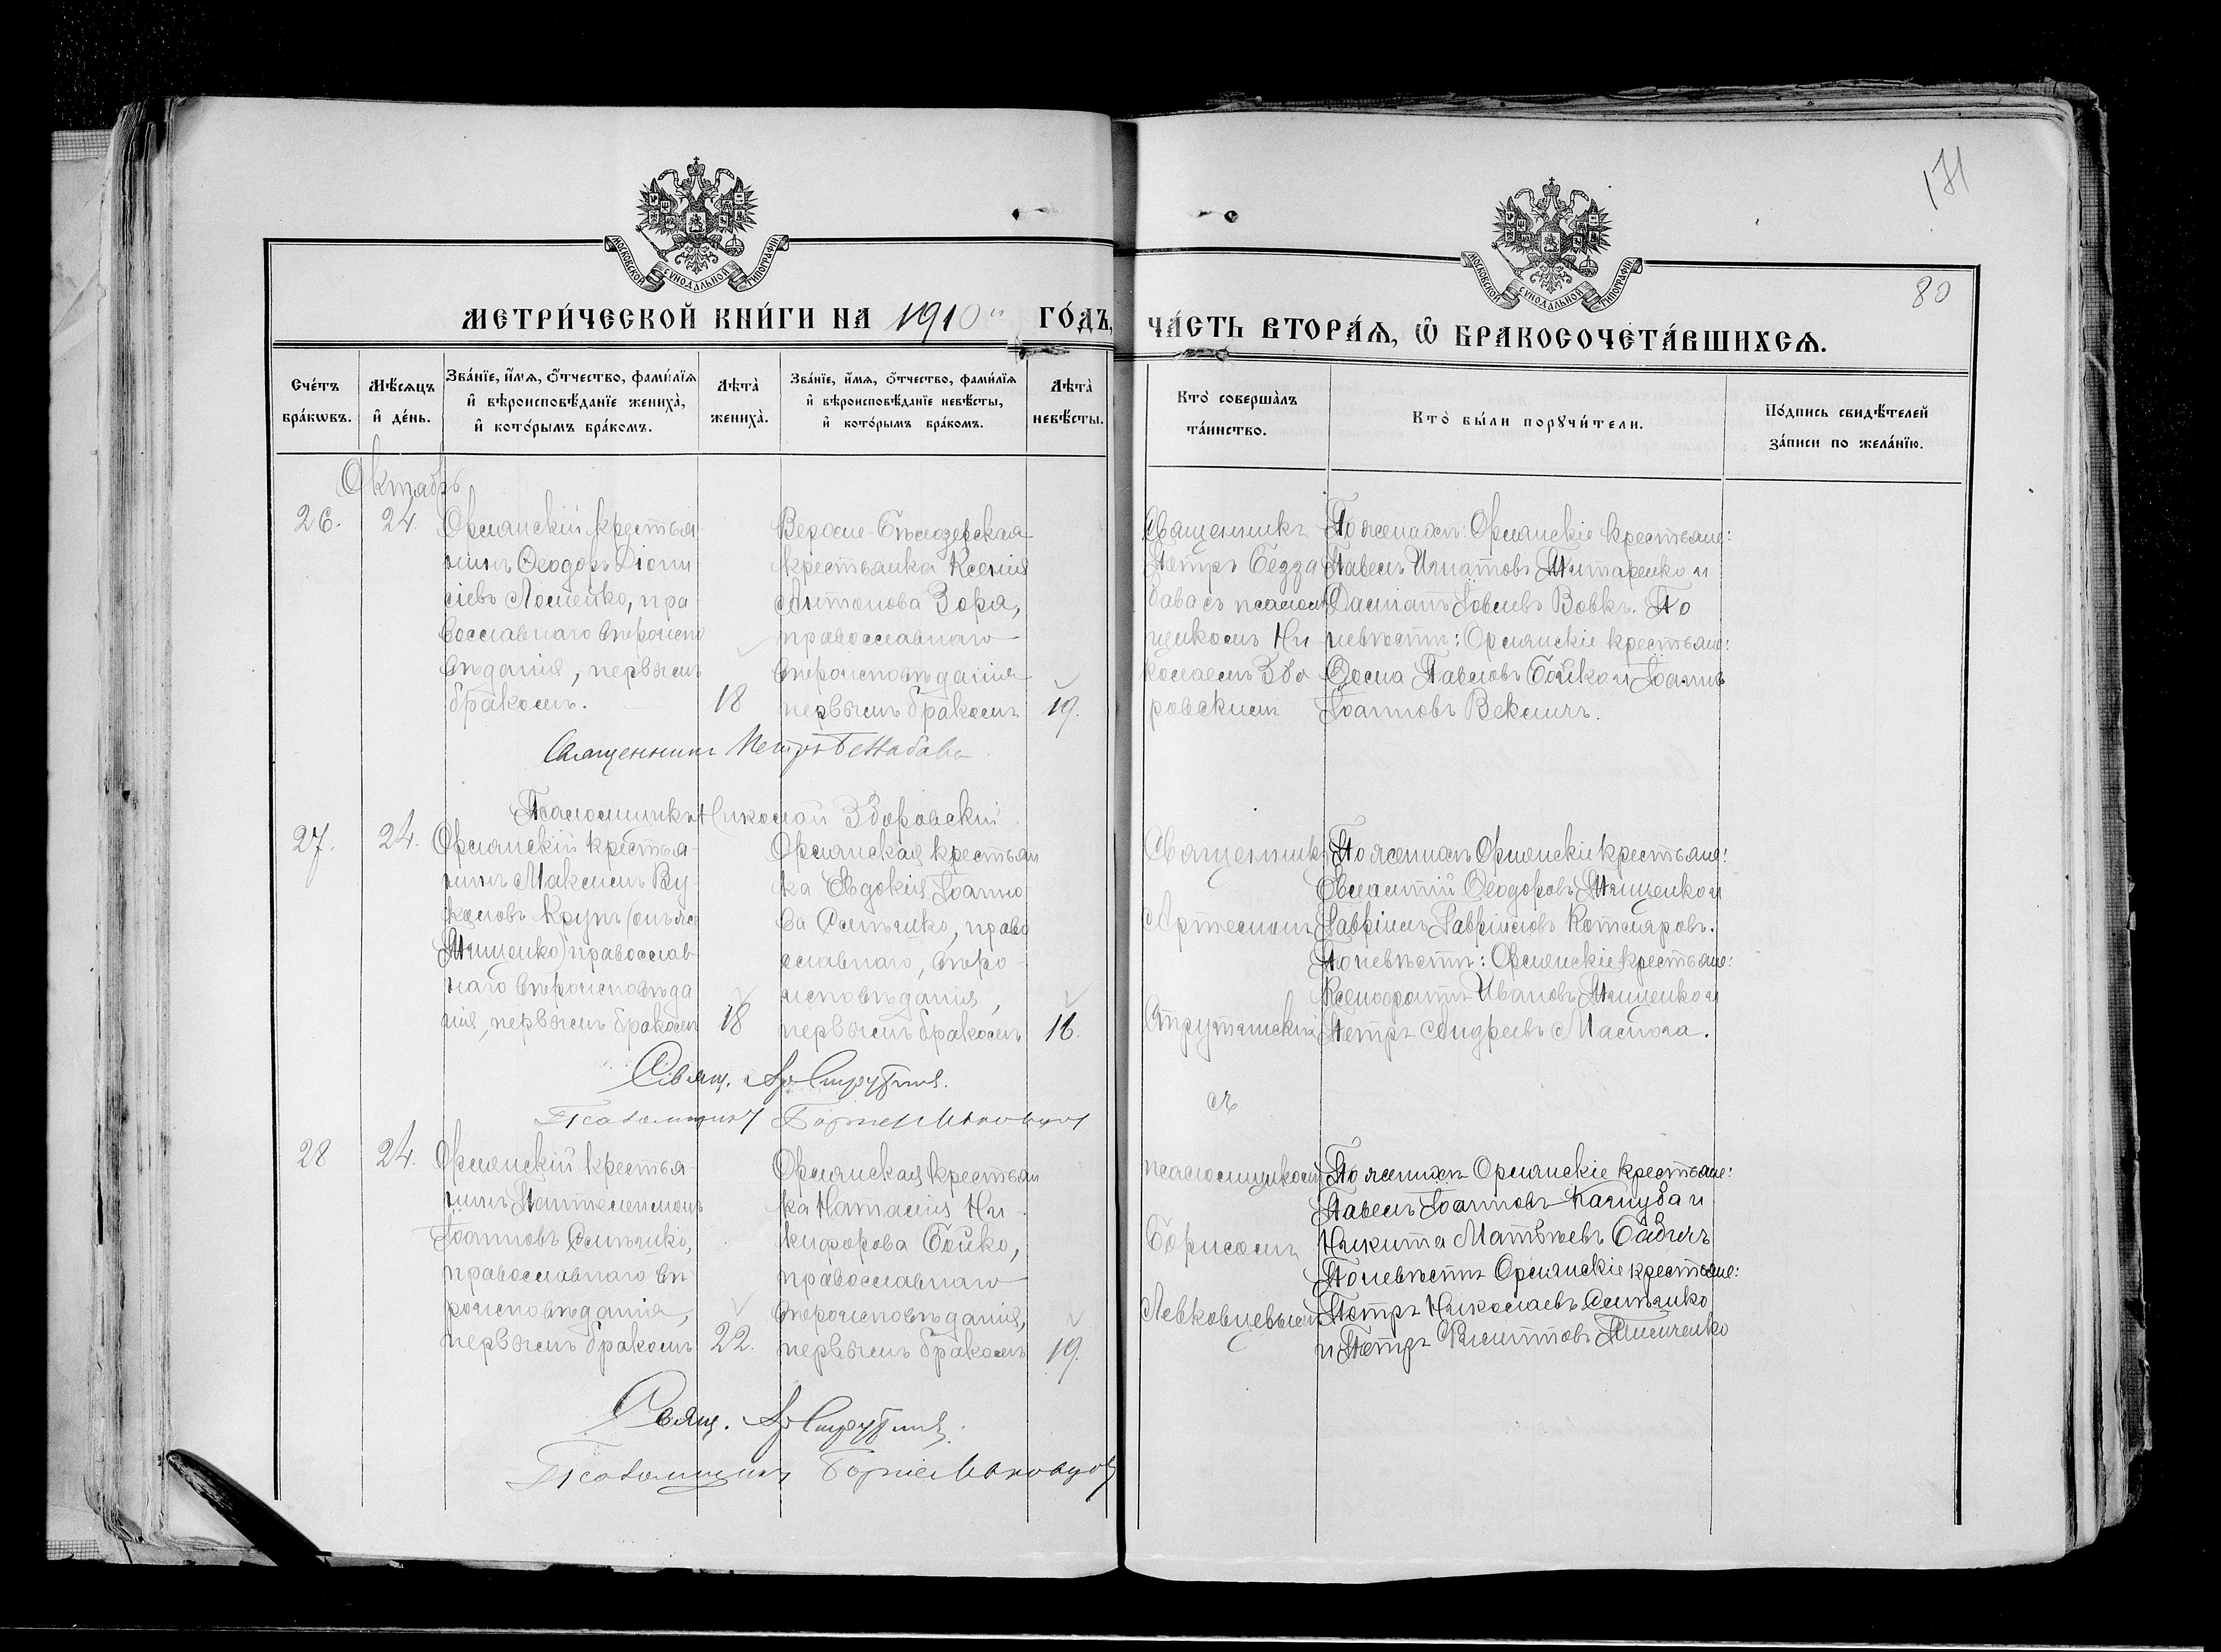 171
80
МОСКОВСКОЙ СѴНОДАЛЬНОЙ ТИПОГРАФІИ
МОСКОВСКОЙ СѴНОДАЛЬНОЙ ТИПОГРАФІИ
МЕТРИ́ЧЕСКОЙ КНИ́ГИ НА 1910 ГО́ДЪ,
ЧА́СТЬ ВТОРА́Ѧ, Ѡ҆ БРАКОСОЧЕТА́ВШИХСѦ.
Сче́тъ бра́кѡвъ.
Мѣ́сѧцъ и҆ де́нь.
Зва́нїе, и҆́мѧ, ѻ҆́тчество, фами́лїѧ
и҆ вѣроисповѣ́данїе жениха̀,
и҆ кото́рымъ бра́комъ.
Лѣта̀ жениха̀.
Зва́нїе, и҆́мѧ, ѻ҆́тчество, фами́лїѧ
и҆ вѣроисповѣ́данїе невѣ́сты,
и҆ кото́рымъ бра́комъ.
Лѣта̀ невѣ́сты.
Кто̀ соверша̀лъ та́инство.
Кто̀ бы́ли порꙋчи́тели.
По́дпись свидѣ́телей
за́писи по жела́нїю.
Октябрь
26.
24.
Орлянскій крестья-
нинъ Ѳеодоръ Діони
сіевъ Лосенко, пра-
вославнаго вѣроиспо
вѣданія, первымъ
бракомъ.
18
Верхне-Бѣлозерская
крестьянка Ксенія
Антонова Зоря,
православнаго
вѣроисповѣданія
первымъ бракомъ
19.
Священникъ
Петръ Безза
бава съ псалом
щикомъ Ни
колаемъ Здо
ровскимъ
По женихѣ: Орлянскіе крестьяне:
Павелъ Игнатовъ Титаренко и
Даміанъ Іовлевъ Вовкъ. По
невѣстѣ: Орлянскіе крестьяне:
Ѳома Павловъ Бойко и Іоаннъ
Іоанновъ Векличъ.
Священникъ Петръ Беззабава
Псаломщикъ Николай Здоровскій
27.
24.
Орлянскій крестья-
нинъ Максимъ Ву-
коловъ Крупъ (онъ же
Тищенко) православ-
наго вѣроисповѣда
нія, первымъ бракомъ
18
Орлянская крестьян
ка Евдокія Іоанно
ва Семенко, право
славнаго, вѣро-
исповѣданія,
первымъ бракомъ
16.
Священникъ
Артемонъ
Струтинскій
съ
псаломщикомъ
Борисомъ
Левковцевымъ
По женихѣ Орлянскіе крестьяне:
Евлампій Ѳеодоровъ Тищенко и
Гавріилъ Гавріиловъ Котляровъ.
По невѣстѣ: Орлянскіе крестьяне:
Ксенофонтъ Ивановъ Тищенко и
Петръ Андреевъ Маслюга.
Свящ. Ар. Струтинск.
Псаломщикъ Борисъ Левковцевъ
28
24.
Орлянскій крестья-
нинъ Пантелеимонъ
Іоанновъ
православнаго вѣ
роисповѣданія,
первымъ бракомъ
22.
Орлянская крестьян
ка Наталія Ни-
кифорова Бойко,
православнаго
вѣроисповѣданія,
первымъ бракомъ
19.
По женихѣ Орлянскіе крестьяне:
Павелъ Іоанновъ Качуба и
Никита Матѳеевъ Бабичъ
По невѣстѣ Орлянскіе крестьяне:
Петръ Николаевъ
и Петръ Филипповъ
Свящ. Ар. Струтинск.
Псаломщикъ Борисъ Левковцевъ